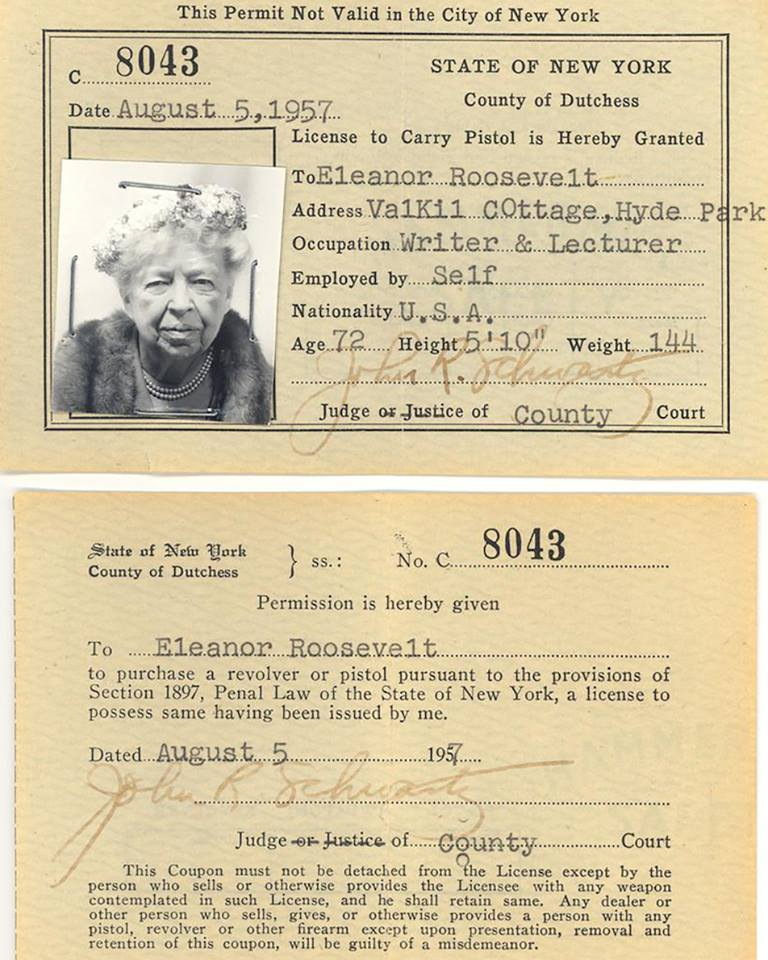 This Permit Not Valid in the City of New York
C 8043
STATE OF NEW YORK
Date August 5, 1957
County of Dutchess
License to Carry Pistol is Hereby Granted
To Eleanor Roosevelt
Address ValKil COttage, Hyde Park
Occupation Writer & Lecturer
Employed by Self
Nationality U.S.A.
Age 72 Height 5'10" Weight 144
John R. Schwartz
Judge or Justice of County Court
State of New York
County of Dutchess } ss.: No. C 8043
Permission is hereby given
To Eleanor Roosevelt
to purchase a revolver or pistol pursuant to the provisions of
Section 1897, Penal Law of the State of New York, a license to
possess same having been issued by me.
Dated August 5 1957
John R. Schwartz
Judge or Justice of County Court
This Coupon must not be detached from the License except by the
person who sells or otherwise provides the Licensee with any weapon
contemplated in such License, and he shall retain same. Any dealer or
other person who sells, gives, or otherwise provides a person with any
pistol, revolver or other firearm except upon presentation, removal and
retention of this coupon, will be guilty of a misdemeanor.